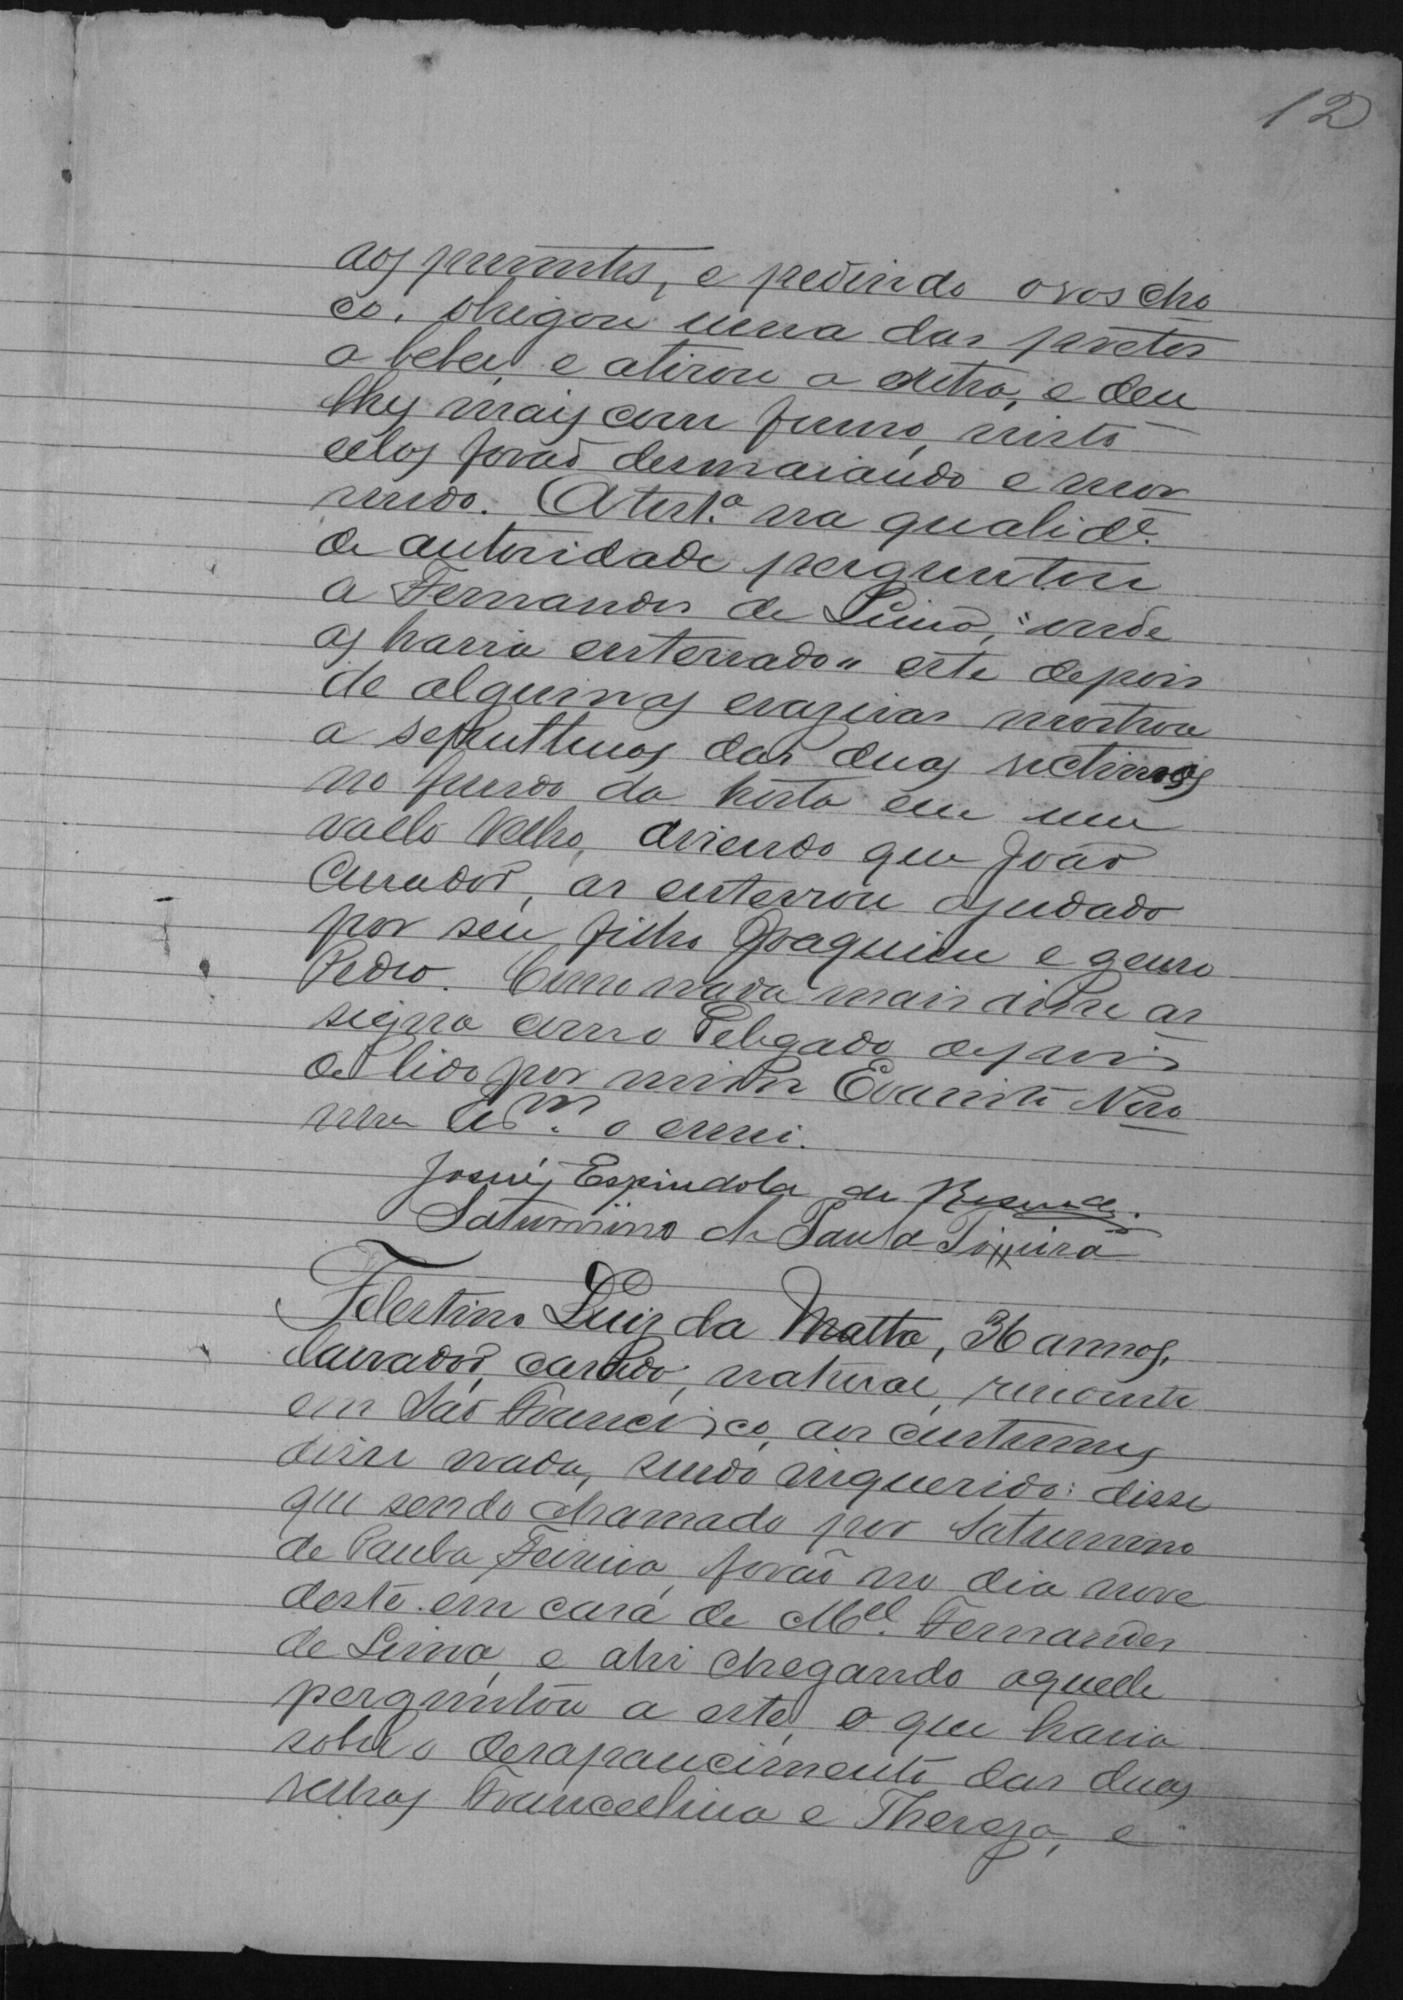 12
aos presentes, e pedindo ovos cho
co, obrigou uma das pretas
a beber, e atirou a outra, e deu
lhes mais com fumo, nisto
ellas forão desmaiando e mor
rendo. A test.ª na qualid.e
de autoridade perguntou
a Fernandes de Lima, "onde
as havia enterrado" este depois
de algumas evazivas mostrou
a sepulturas das duas victimas
no fundo da horta em um
vallo velho, dizendo que João
Curador, as enterrou ajudado
por seu filho Joaquim e genro
Pedro. Como nada mais disse as
signa como Delegado depois
de lido por mim Evaristo
o escrevi.
Josué Espindola de Resende.
Saturnino de Paula Teixeira
Felestino Luiz da Matta, 36 annos,
lavrador, casado, natural, rezidente
em São Francisco, aos custumes
disse nada, sendo inquerido: disse
que sendo chamado por Saturnino
de Paula Teixeira, forão no dia nove
deste em casa de M.el Fernandes
de Lima, e ahi chegando aquelle
perguntou a este, o que havia
sobre o desaparecimento das duas
velhas Francelina e Thereza, e